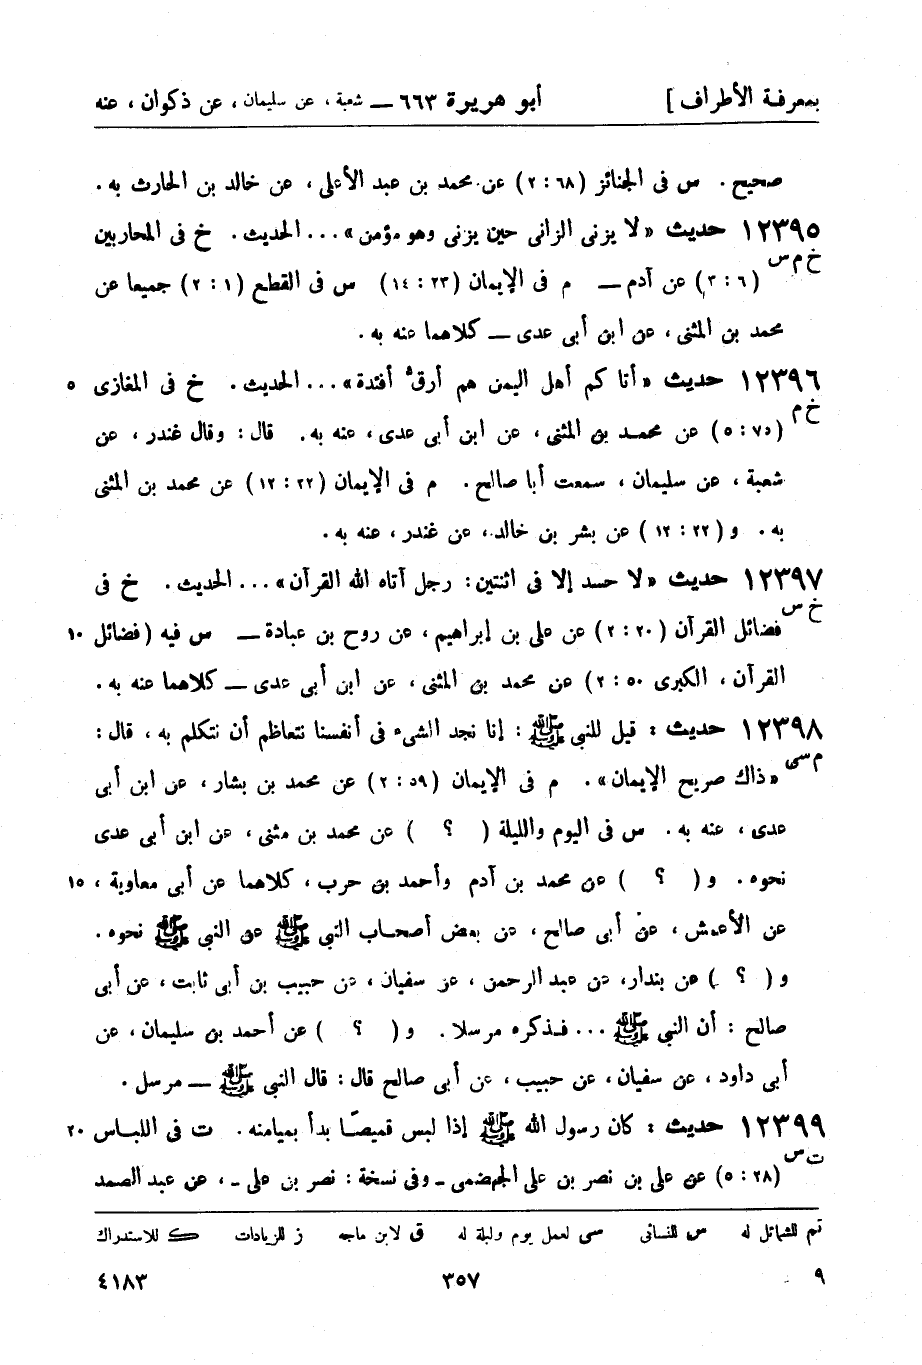 بمعرفة الأطراف ] أبو هريرة ٦٦٣ — شعبة ، عن سليمان ، عن ذكوان ، عنه
صحيح . س فى الجنائز (٦٨ : ٢) عن محمد بن عبد الأعلى ، عن خالد بن الحارث به .
١٢٣٩٥ حديث « لا يزنى الزانى حين يزنى وهو مؤمن » ... الحديث . خ فى المحاربين
خ م س (٦ : ٣) عن آدم — م فى الإيمان (٢٣ : ١٤) س فى القطع (١ : ٢) جميعا عن
محمد بن المثنى ، عن ابن أبى عدى — كلاهما عنه به .
١٢٣٩٦ حديث « أتا كم أهل اليمن هم أرقّ أفئدة » ... الحديث . خ فى المغازى ٥
خ م (٧٥ : ٥) عن محمد بن المثنى ، عن ابن أبى عدى ، عنه به . قال : وقال غندر ، عن
شعبة ، عن سليمان ، سمعت أبا صالح . م فى الإيمان (٢٢ : ١٢) عن محمد بن المثنى
به . و (٢٢ : ١٢) عن بشر بن خالد ، عن غندر ، عنه به .
١٢٣٩٧ حديث « لا حسد إلا فى اثنتين : رجل أتاه الله القرآن » ... الحديث . خ فى
خ س فضائل القرآن (٢٠ : ٢) عن على بن إبراهيم ، عن روح بن عبادة — س فيه (فضائل ١٠
القرآن ، الكبرى ٥٠ : ٢) عن محمد بن المثنى ، عن ابن أبى عدى — كلاهما عنه به .
١٢٣٩٨ حديث : قيل للنبى ﷺ : إنا نجد الشىء فى أنفسنا نتعاظم أن نتكلم به ، قال :
م سى « ذاك صريح الإيمان » . م فى الإيمان (٥٩ : ٢) عن محمد بن بشار ، عن ابن أبى
عدى ، عنه به . س فى اليوم والليلة ( ؟ ) عن محمد بن مثنى ، عن ابن أبى عدى
نحوه . و ( ؟ ) عن محمد بن آدم وأحمد بن حرب ، كلاهما عن أبى معاوية ، ١٥
عن الأعمش ، عن أبى صالح ، عن بعض أصحاب النبى ﷺ عن النبى ﷺ نحوه .
و ( ؟ ) عن بندار ، عن عبد الرحمن ، عن سفيان ، عن حبيب بن أبى ثابت ، عن أبى
صالح : أن النبى ﷺ ... فذكره مرسلا . و ( ؟ ) عن أحمد بن سليمان ، عن
أبى داود ، عن سفيان ، عن حبيب ، عن أبى صالح قال : قال النبى ﷺ — مرسل .
١٢٣٩٩ حديث : كان رسول الله ﷺ إذا لبس قميصًا بدأ بميامنه . ت فى اللباس ٢٠
ت س (٢٨ : ٥) عن على بن نصر بن على الجهضمى - وفى نسخة : نصر بن على - ، عن عبد الصمد
تم للشمائل له س للنسائى سى لعمل يوم وليلة له ق لابن ماجه ز للزيادات ك للاستدراك
٩ ٣٥٧ ٤١٨٣